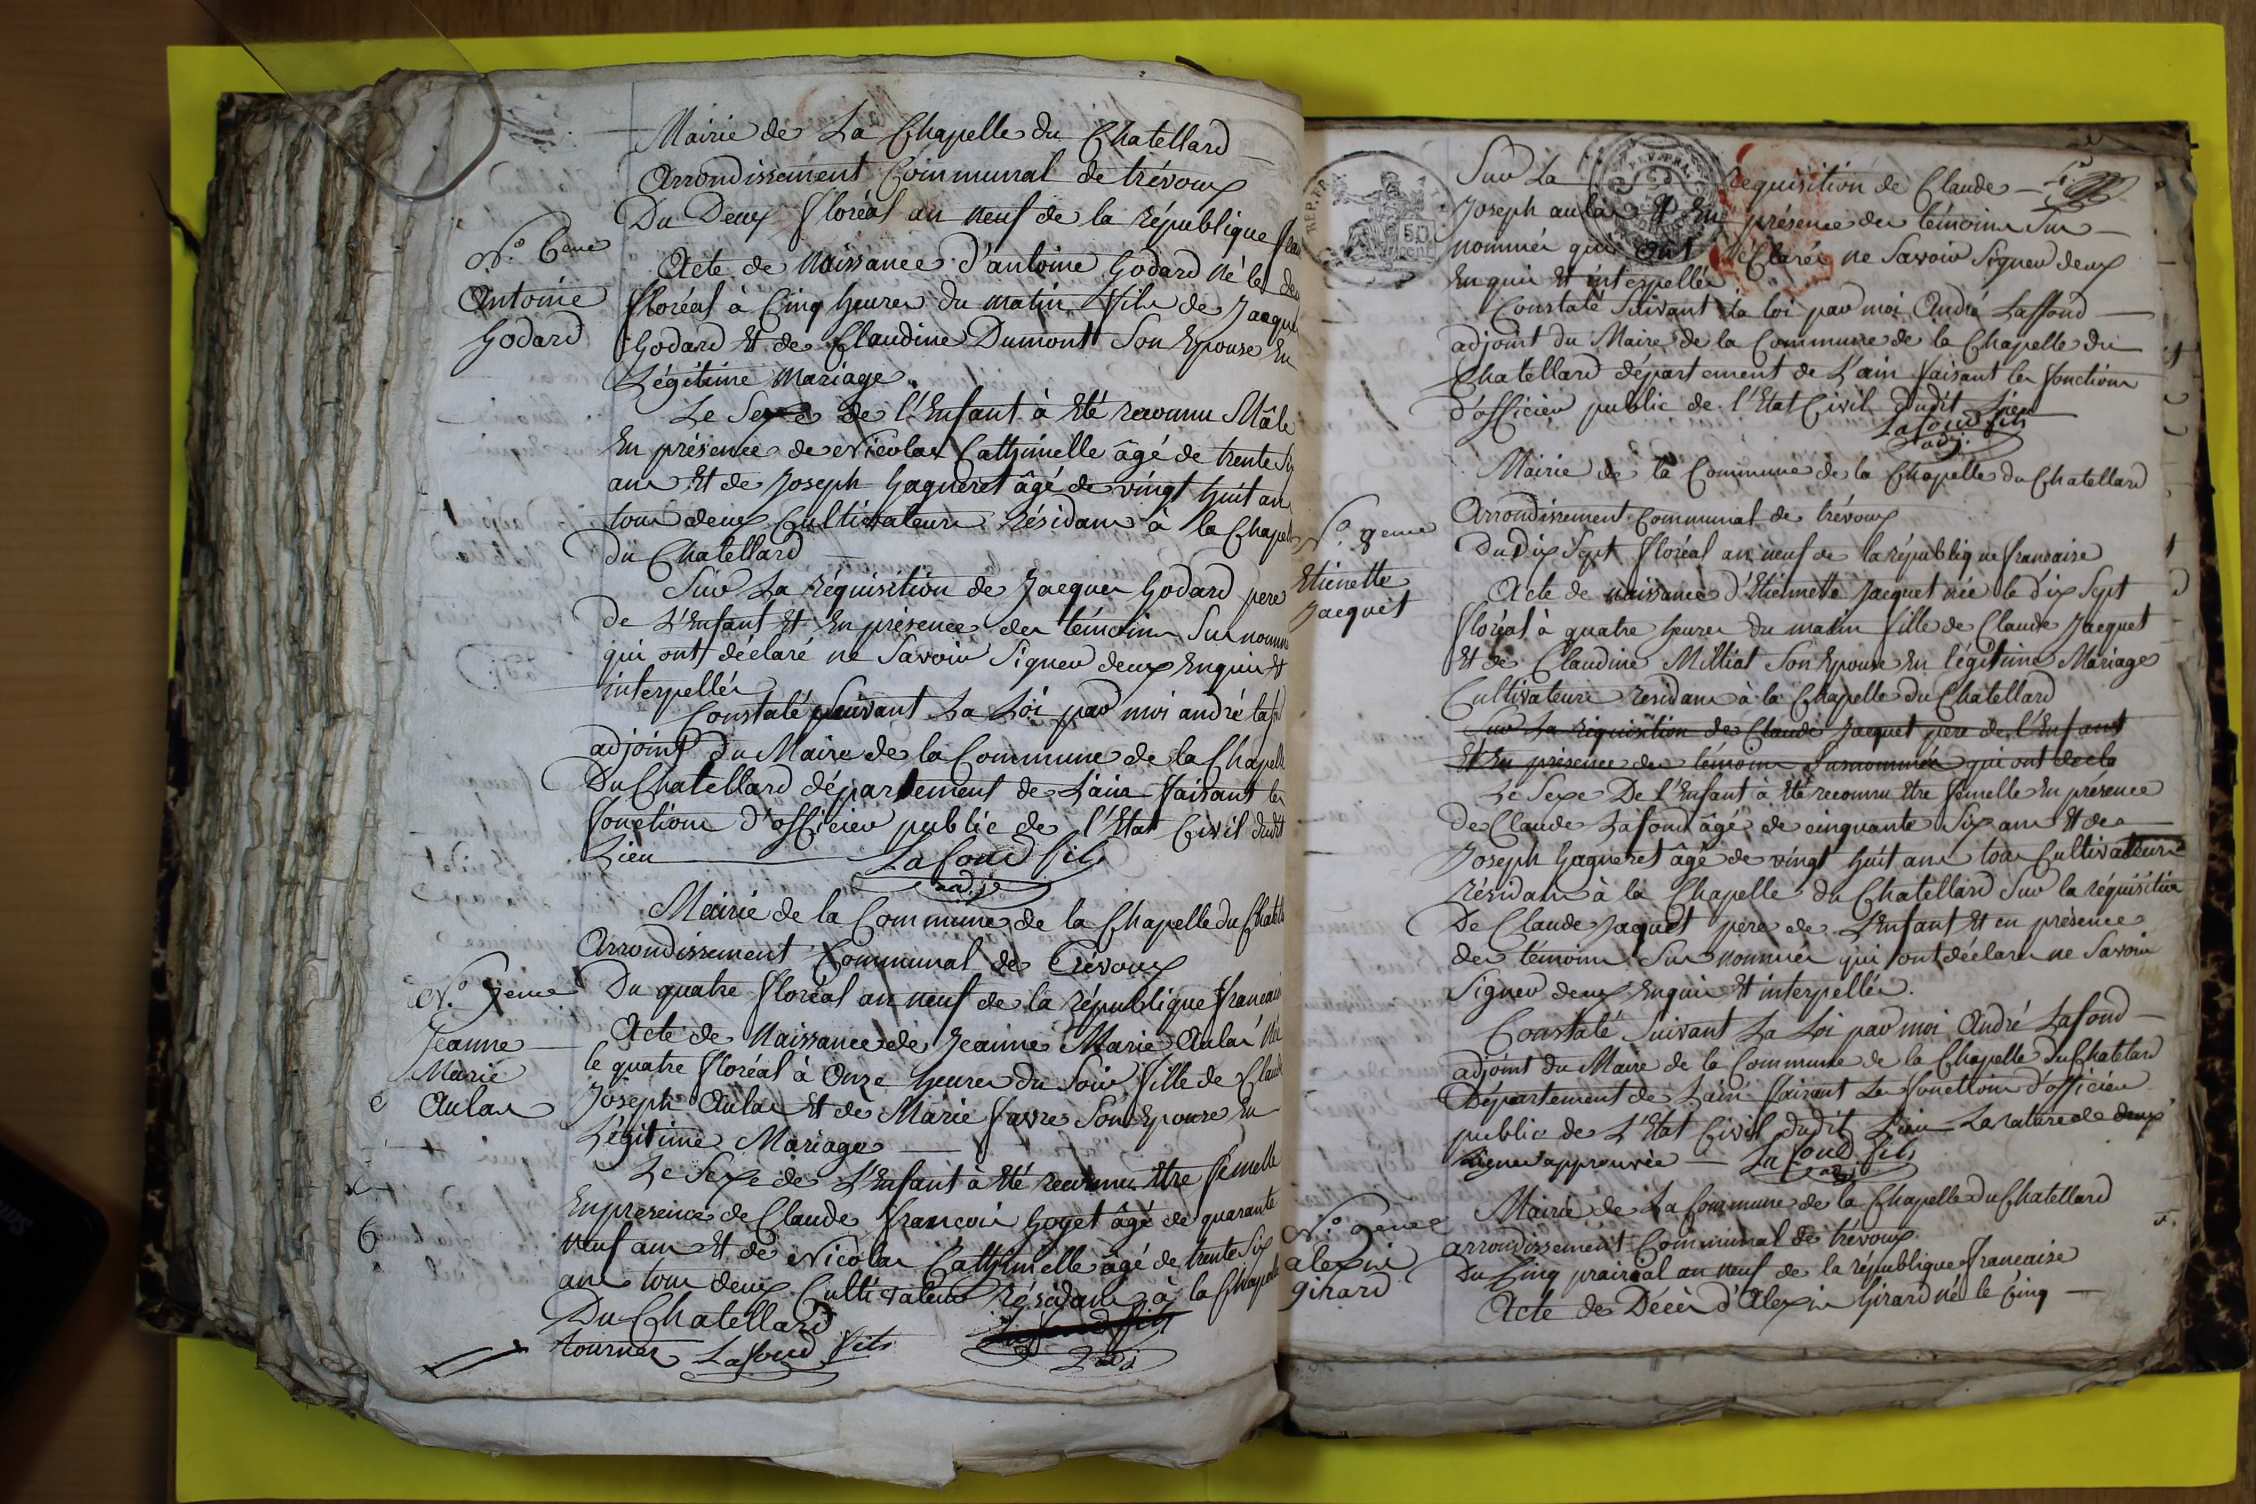 Mairie de La Chapelle du Chatellard
Arrondissement Communal de trévoux
Du Deux floréal an neuf de la république fra
N.º 6eme
Antoine
Godard
Acte de Naissance d'antoine Godard né le deu
floréal à Cinq heures du matin fils de Jacque
Godard Et de Claudine Dumont Son Epouse En
Légitime Mariage.
Le Sexe de l'Enfant à Eté reconnu Mâle
En présence de Nicolas Cathinelle âgé de trente Six
ans Et de Joseph Gagneret âgé de vingt huit an
tous deux Cultivateurs Résidans à la Chapel
du Chatellard
Sur La réquisition de Jacques Godard pere
de L'Enfant Et En présence des témoins Sus nommé
qui ont déclaré ne Savoir Signer deux Enquis Et
interpellés
Constaté suivant La Loi par moi andré lafo
adjoint du Maire de la Commune de la Chapelle
Du Chatellard département de L'ain faisant les
fonctions d'officier public de l'Etat Civil dudit
Lieu Lafond fils
adj.
Mairie de la Commune de la Chapelle du Chatell
Arrondissement Communal de Trévoux
N.º 7eme
Jeanne
Marie
Aulas
Du quatre floréal an neuf de la république francais
Acte de Naissance de Jeanne Marie Aulas Née
le quatre floréal à Onze heures du Soir fille de Claude
Joseph Aulas Et de Marie favre Son Epouse En
Légitime Mariage
Le Sexe de L'Enfant à Eté reconnu Etre femelle
En presence de Claude francois Goyet âgé de quarante
neuf ans Et de Nicolas Cathinelle âgé de trente Six
ans tous deux Cultivateurs résidans à la Chapelle
Du Chatellard
tournez Lafond fils
adj
Sur La requisition de Claude
Joseph aulas Et En présence des témoins Sus
nommés qui ont déclarés ne Savoir Signer deux
Enquis Et interpellés
Constaté Suivant la loi par moi André Laffond
adjoint du Maire de la Commune de la Chapelle du
Chatellard département de L'ain faisant les fonctions
d'officier public de l'Etat Civil dudit Lieu
Lafond fils
adj.
Mairie de la Commune de la Chapelle du Chatellard
Arrondissement Communal de trévoux
N.º 8eme
Etienette
Jacquet
Du Dix Sept floréal an neuf de la république francaise
Acte de naissance d'Etiennette Jacquet née le dix Sept
floréal à quatre heures du matin fille de Claude Jacquet
Et de Claudine Milliat Son Epouse En légitime Mariage
Cultivateurs residans à la Chapelle du Chatellard
Sur La requisition de Claude Jacquet pere de l'Enfant
Et En présence des témoins Susnommés qui ont decla
Le Sexe De l'Enfant à Eté reconnu Etre femelle En présence
de Claude Lafond âgé de cinquante Six ans Et de
Joseph Gagneret âgé de vingt huit ans tous Cultivateurs
résidans à la Chapelle du Chatellard Sur la réquisition
De Claude Jaquet pere de L'Enfant Et en présence
des témoins Sus nommés qui ont déclaré ne Savoir
Signer deux Enquis Et interpellés.
Constaté Suivant La Loi par moi André Lafond
adjoint du Maire de la Commune de la Chapelle Du Chatelard
Département de Lain faisant Les fonctions d'officier
public de L'Etat Civil dudit Lieu La rature de deux
Lignes approuvée Lafond fils
adj
Mairie de La Commune de la Chapelle Du Chatellard
N.º 9eme
alexis
girard
arrondissement Communal de trévoux
Du Cinq prairéal an neuf de la république francaise
Acte de Décès d'Alexis Girard né le Cinq